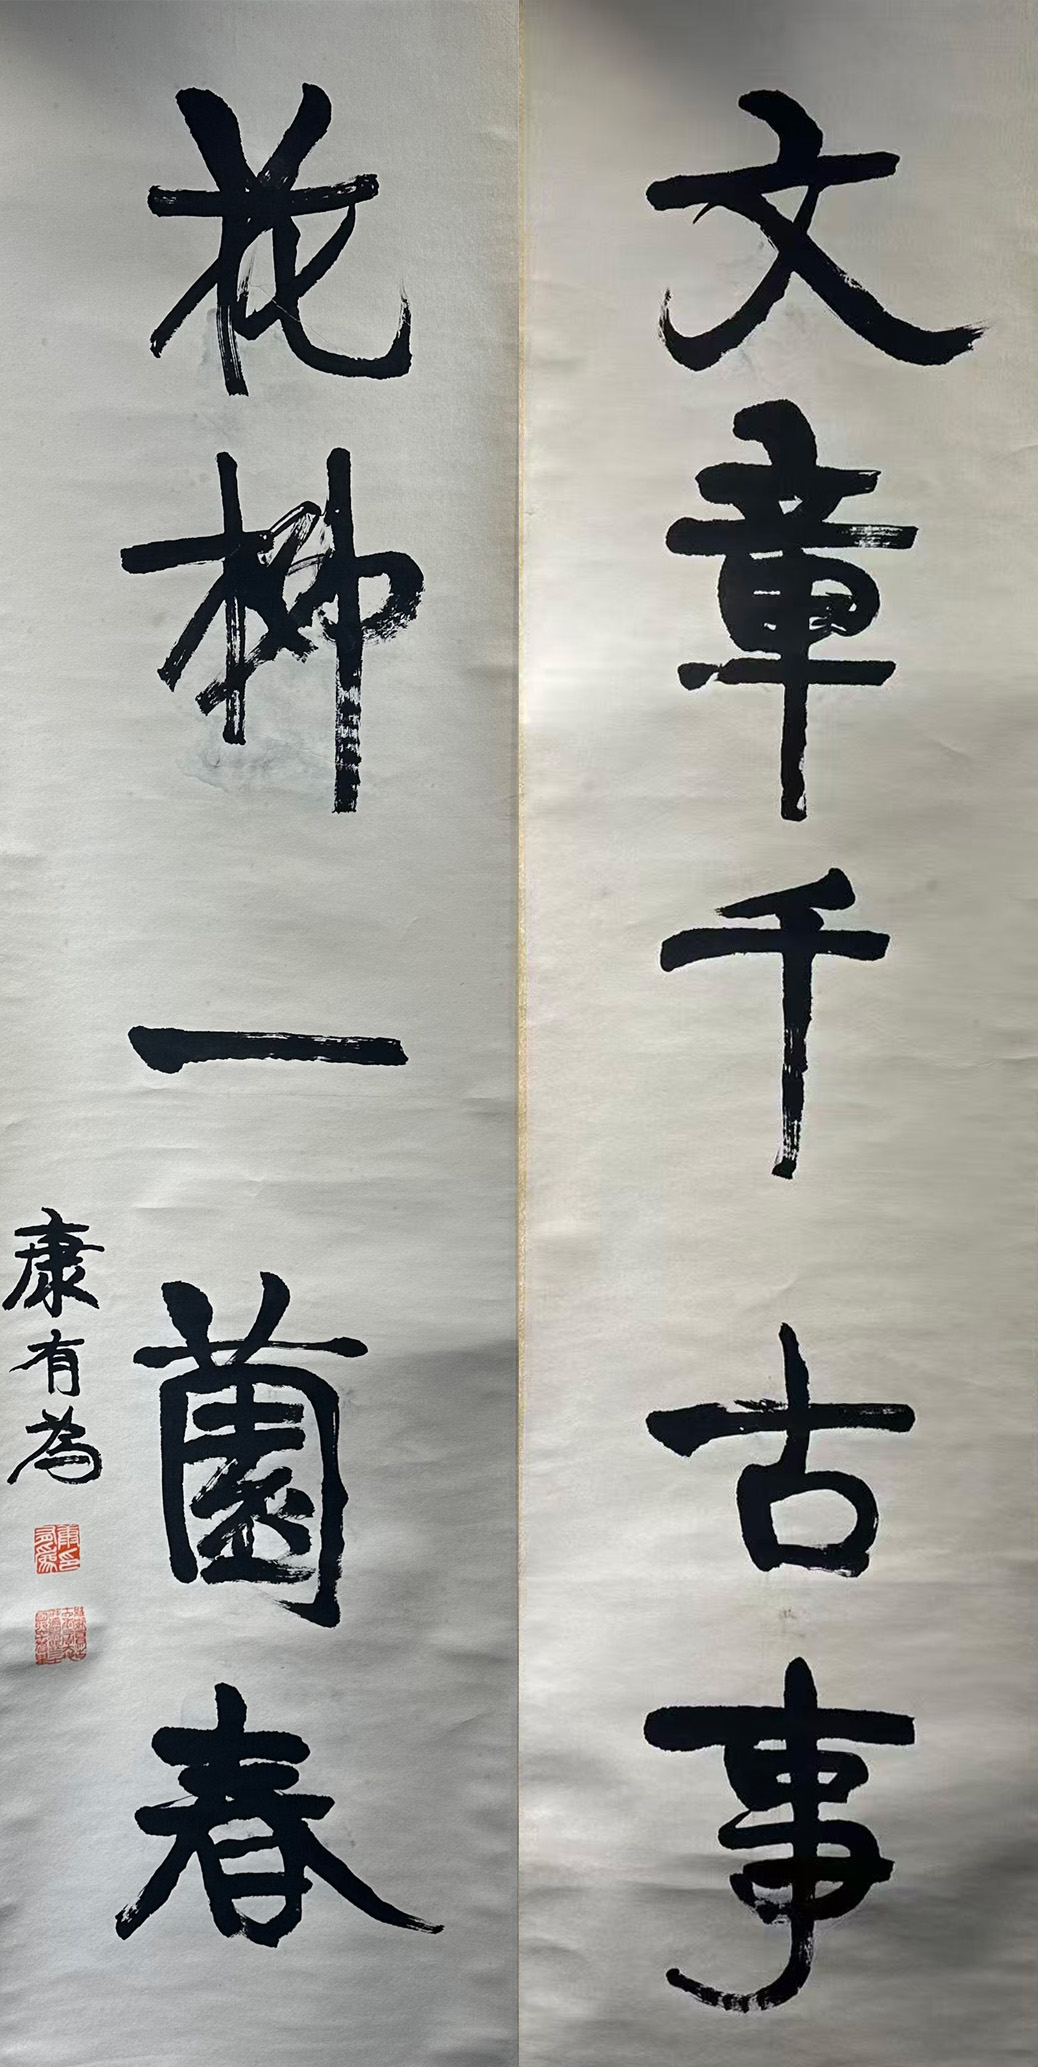 文章千古事
花柳一薗春
康有為